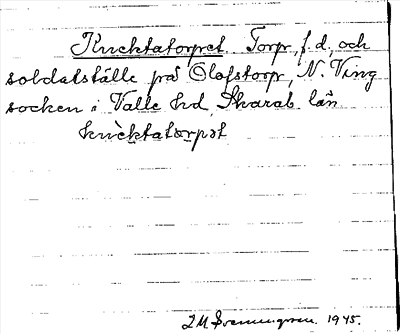 Knektatorpet. Torp, f. d., och
soldatställe på Olofstorp, N. Ving
socken i Valle hd Skarab. län
knèktatorpət
1945.